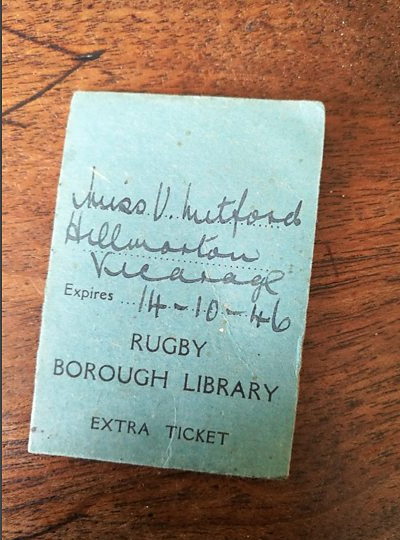 Miss V. Mitford
Hillmorton
Vicarage
Expires ... 14-10-46
RUGBY
BOROUGH LIBRARY
EXTRA TICKET